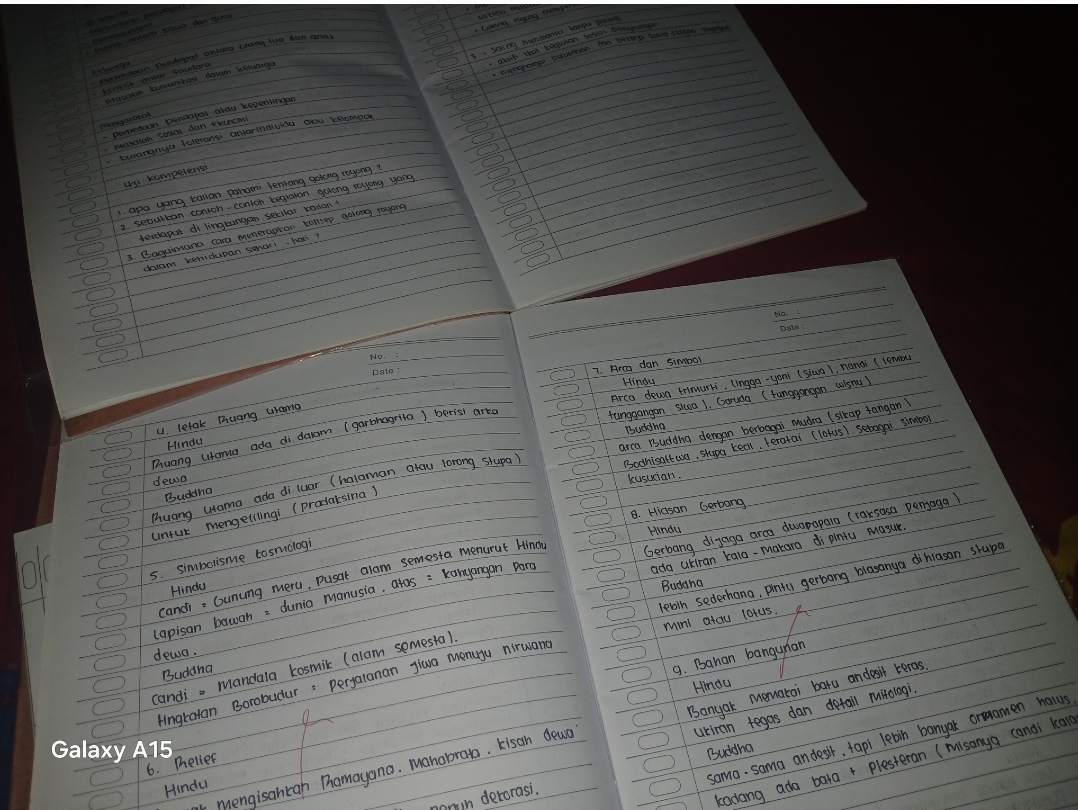 Perbedaan pendapat antara orang tua dan anak
konflik antar saudara
masalah komunikasi dalam keluarga
masyarakat
- Perbedaan pendapat atau kepentingan
- masalah sosial dan ekonomi
- kurangnya toleransi antarindividu atau kelompok
Uji kompetensi
1. apa yang kalian pahami tentang gotong royong ?
2. sebutkan contoh-contoh kegiatan gotong royong yang
terdapat di lingkungan sekitar kalian !
3. Bagaimana cara menerapkan konsep gotong royong
dalam kehidupan sehari-hari ?
5. saling membantu tanpa pamrih
No. :
Date :
4. letak Ruang utama
Hindu
Ruang utama ada di dalam (garbhagriha) berisi arka
dewa
Buddha
Ruang utama ada di luar (halaman atau lorong stupa)
untuk mengelilingi (pradaksina)
5. Simbolisme kosmologi
Hindu
candi = Gunung meru, pusat alam semesta menurut Hindu
lapisan bawah = dunia manusia, atas = kahyangan para
dewa.
Buddha
candi = mandala kosmik (alam semesta).
tingkatan Borobudur = perjalanan jiwa menuju nirwana
6. Relief
Hindu
mengisahkan Ramayana, Mahabrata, kisah dewa
penuh dekorasi.
No. :
Date :
7. Arca dan simbol
Hindu
Arca dewa trimurti, lingga-yoni (siwa), nandi (lembu
tunggangan siwa), Garuda (tunggangan wisnu)
Buddha
arca Buddha dengan berbagai mudra (sikap tangan)
Bodhisattwa, stupa kecil, teratai (lotus) sebagai simbol
kusucian.
8. Hiasan Gerbang
Hindu
Gerbang dijaga arca dwapapala (raksasa penjaga)
ada ukiran kala-makara di pintu masuk.
Buddha
lebih sederhana, pintu gerbang biasanya dihiasan stupa
mini atau lotus.
9. Bahan bangunan
Hindu
Banyak memakai batu andesit keras.
ukiran tegas dan detail mitologi.
Buddha
sama-sama andesit, tapi lebih banyak ornamen halus.
kadang ada bata + plesteran (misanya candi kalas
Galaxy A15